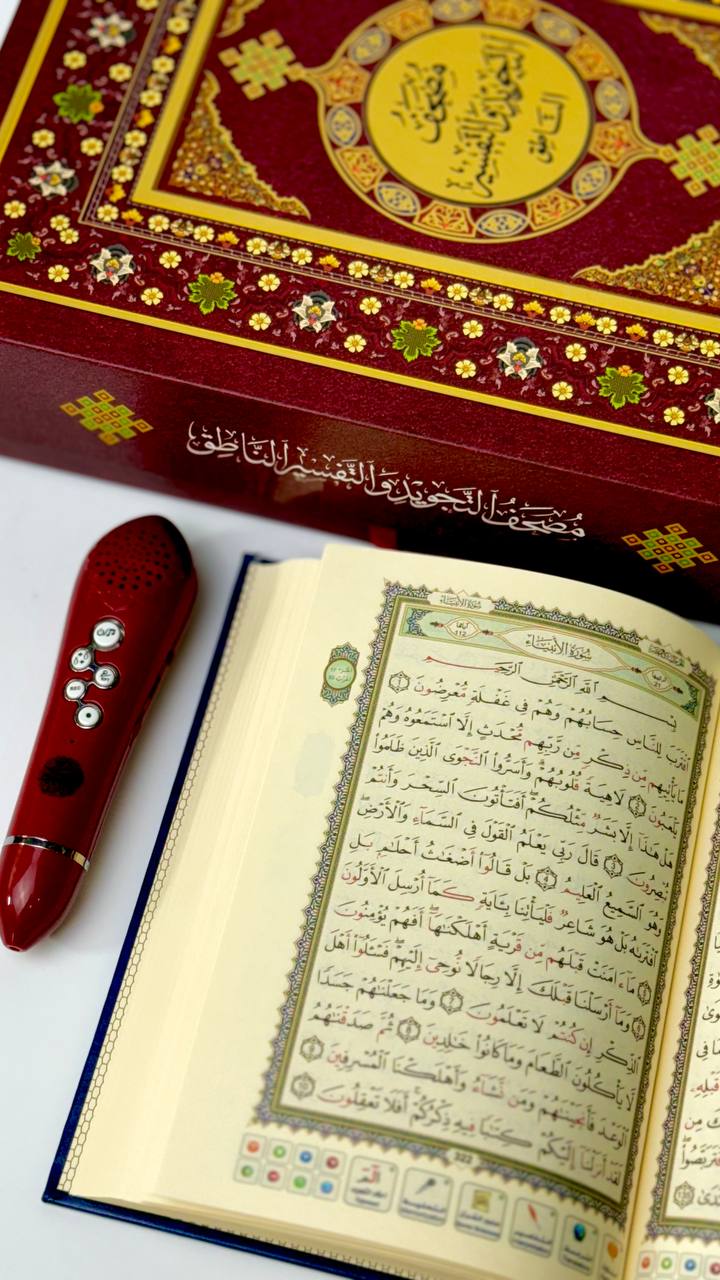 مصحف
التجويد والتفسير
الناطق
مُصْحَفُ التَّجْوِيدِ وَالتَّفْسِيرِ النَّاطِقِ
سُورَةُ الأَنْبِيَاءِ
آياتها
112
سُورَةُ الأَنْبِيَاءِ
بِسْمِ اللَّهِ الرَّحْمَٰنِ الرَّحِيمِ
ٱقْتَرَبَ لِلنَّاسِ حِسَابُهُمْ وَهُمْ فِى غَفْلَةٍ مُّعْرِضُونَ ١
مَا يَأْتِيهِم مِّن ذِكْرٍ مِّن رَّبِّهِم مُّحْدَثٍ إِلَّا ٱسْتَمَعُوهُ وَهُمْ
يَلْعَبُونَ ٢ لَاهِيَةً قُلُوبُهُمْ ۗ وَأَسَرُّوا۟ ٱلنَّجْوَى ٱلَّذِينَ ظَلَمُوا۟
هَلْ هَٰذَآ إِلَّا بَشَرٌ مِّثْلُكُمْ ۖ أَفَتَأْتُونَ ٱلسِّحْرَ وَأَنتُمْ
تُبْصِرُونَ ٣ قَالَ رَبِّى يَعْلَمُ ٱلْقَوْلَ فِى ٱلسَّمَآءِ وَٱلْأَرْضِ ۖ
وَهُوَ ٱلسَّمِيعُ ٱلْعَلِيمُ ٤ بَلْ قَالُوٓا۟ أَضْغَٰثُ أَحْلَٰمٍۭ بَلِ
ٱفْتَرَىٰهُ بَلْ هُوَ شَاعِرٌ فَلْيَأْتِنَا بِـَٔايَةٍ كَمَآ أُرْسِلَ ٱلْأَوَّلُونَ
٥ مَآ ءَامَنَتْ قَبْلَهُم مِّن قَرْيَةٍ أَهْلَكْنَٰهَآ ۖ أَفَهُمْ يُؤْمِنُونَ
٦ وَمَآ أَرْسَلْنَا قَبْلَكَ إِلَّا رِجَالًا نُّوحِىٓ إِلَيْهِمْ ۖ فَسْـَٔلُوٓا۟ أَهْلَ
ٱلذِّكْرِ إِن كُنتُمْ لَا تَعْلَمُونَ ٧ وَمَا جَعَلْنَٰهُمْ جَسَدًا
لَّا يَأْكُلُونَ ٱلطَّعَامَ وَمَا كَانُوا۟ خَٰلِدِينَ ٨ ثُمَّ صَدَقْنَٰهُمُ
ٱلْوَعْدَ فَأَنجَيْنَٰهُمْ وَمَن نَّشَآءُ وَأَهْلَكْنَا ٱلْمُسْرِفِينَ ٩
لَقَدْ أَنزَلْنَآ إِلَيْكُمْ كِتَٰبًا فِيهِ ذِكْرُكُمْ ۖ أَفَلَا تَعْقِلُونَ ١٠
322